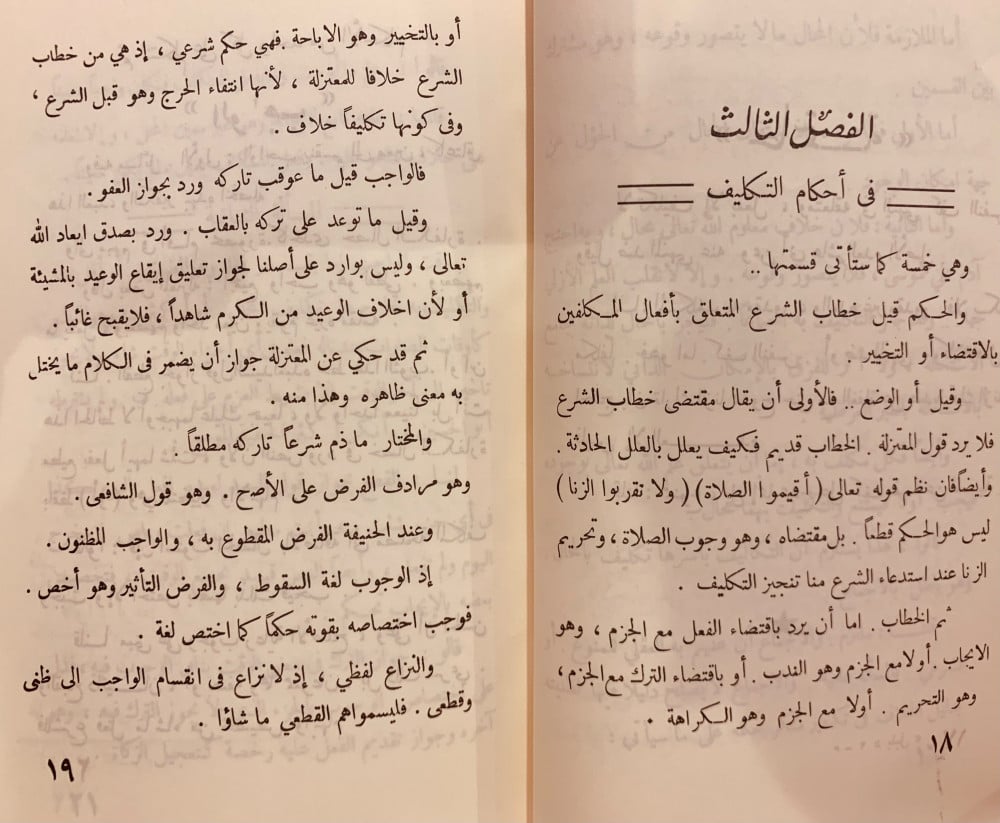 الفصل الثالث
في أحكام التكليف
وهي خمسة كما ستأتى قسمتها ..
والحكم قيل خطاب الشرع المتعلق بأفعال المكلفين
بالاقتضاء أو التخيير .
وقيل أو الوضع .. فالأولى أن يقال مقتضى خطاب الشرع
فلا يرد قول المعتزلة . الخطاب قديم فكيف يعلل بالعلل الحادثة .
وأيضاً فان نظم قوله تعالى ( أقيموا الصلاة ) ( ولا تقربوا الزنا )
ليس هو الحكم قطعاً . بل مقتضاه ، وهو وجوب الصلاة ، وتحريم
الزنا عند استدعاء الشرع منا تنجيز التكليف .
ثم الخطاب . اما أن يرد باقتضاء الفعل مع الجزم ، وهو
الايجاب . أولا مع الجزم وهو الندب . أو باقتضاء الترك مع الجزم ،
وهو التحريم . أولا مع الجزم وهو الكراهة .
١٨
أو بالتخيير وهو الاباحة فهي حكم شرعي ، إذ هي من خطاب
الشرع خلافا للمعتزلة ، لأنها انتفاء الحرج وهو قبل الشرع ،
وفى كونها تكليفاً خلاف .
فالواجب قيل ما عوقب تاركه ورد بجواز العفو .
وقيل ما توعد على تركه بالعقاب . ورد بصدق ايعاد الله
تعالى ، وليس بوارد على أصلنا لجواز تعليق إيقاع الوعيد بالمشيئة
أو لأن اخلاف الوعيد من الكرم شاهداً ، فلا يقبح غائباً .
ثم قد حكي عن المعتزلة جواز أن يضمر فى الكلام ما يختل
به معنى ظاهره وهذا منه .
والمختار ما ذم شرعاً تاركه مطلقاً .
وهو مرادف الفرض على الأصح . وهو قول الشافعى .
وعند الحنيفة الفرض المقطوع به ، والواجب المظنون .
إذ الوجوب لغة السقوط ، والفرض التأثير وهو أخص .
فوجب اختصاصه بقوته حكماً كما اختص لغة .
والنزاع لفظي ، إذ لا نزاع فى انقسام الواجب الى ظنى
وقطعى . فليسموا هم القطعي ما شاؤا .
١٩